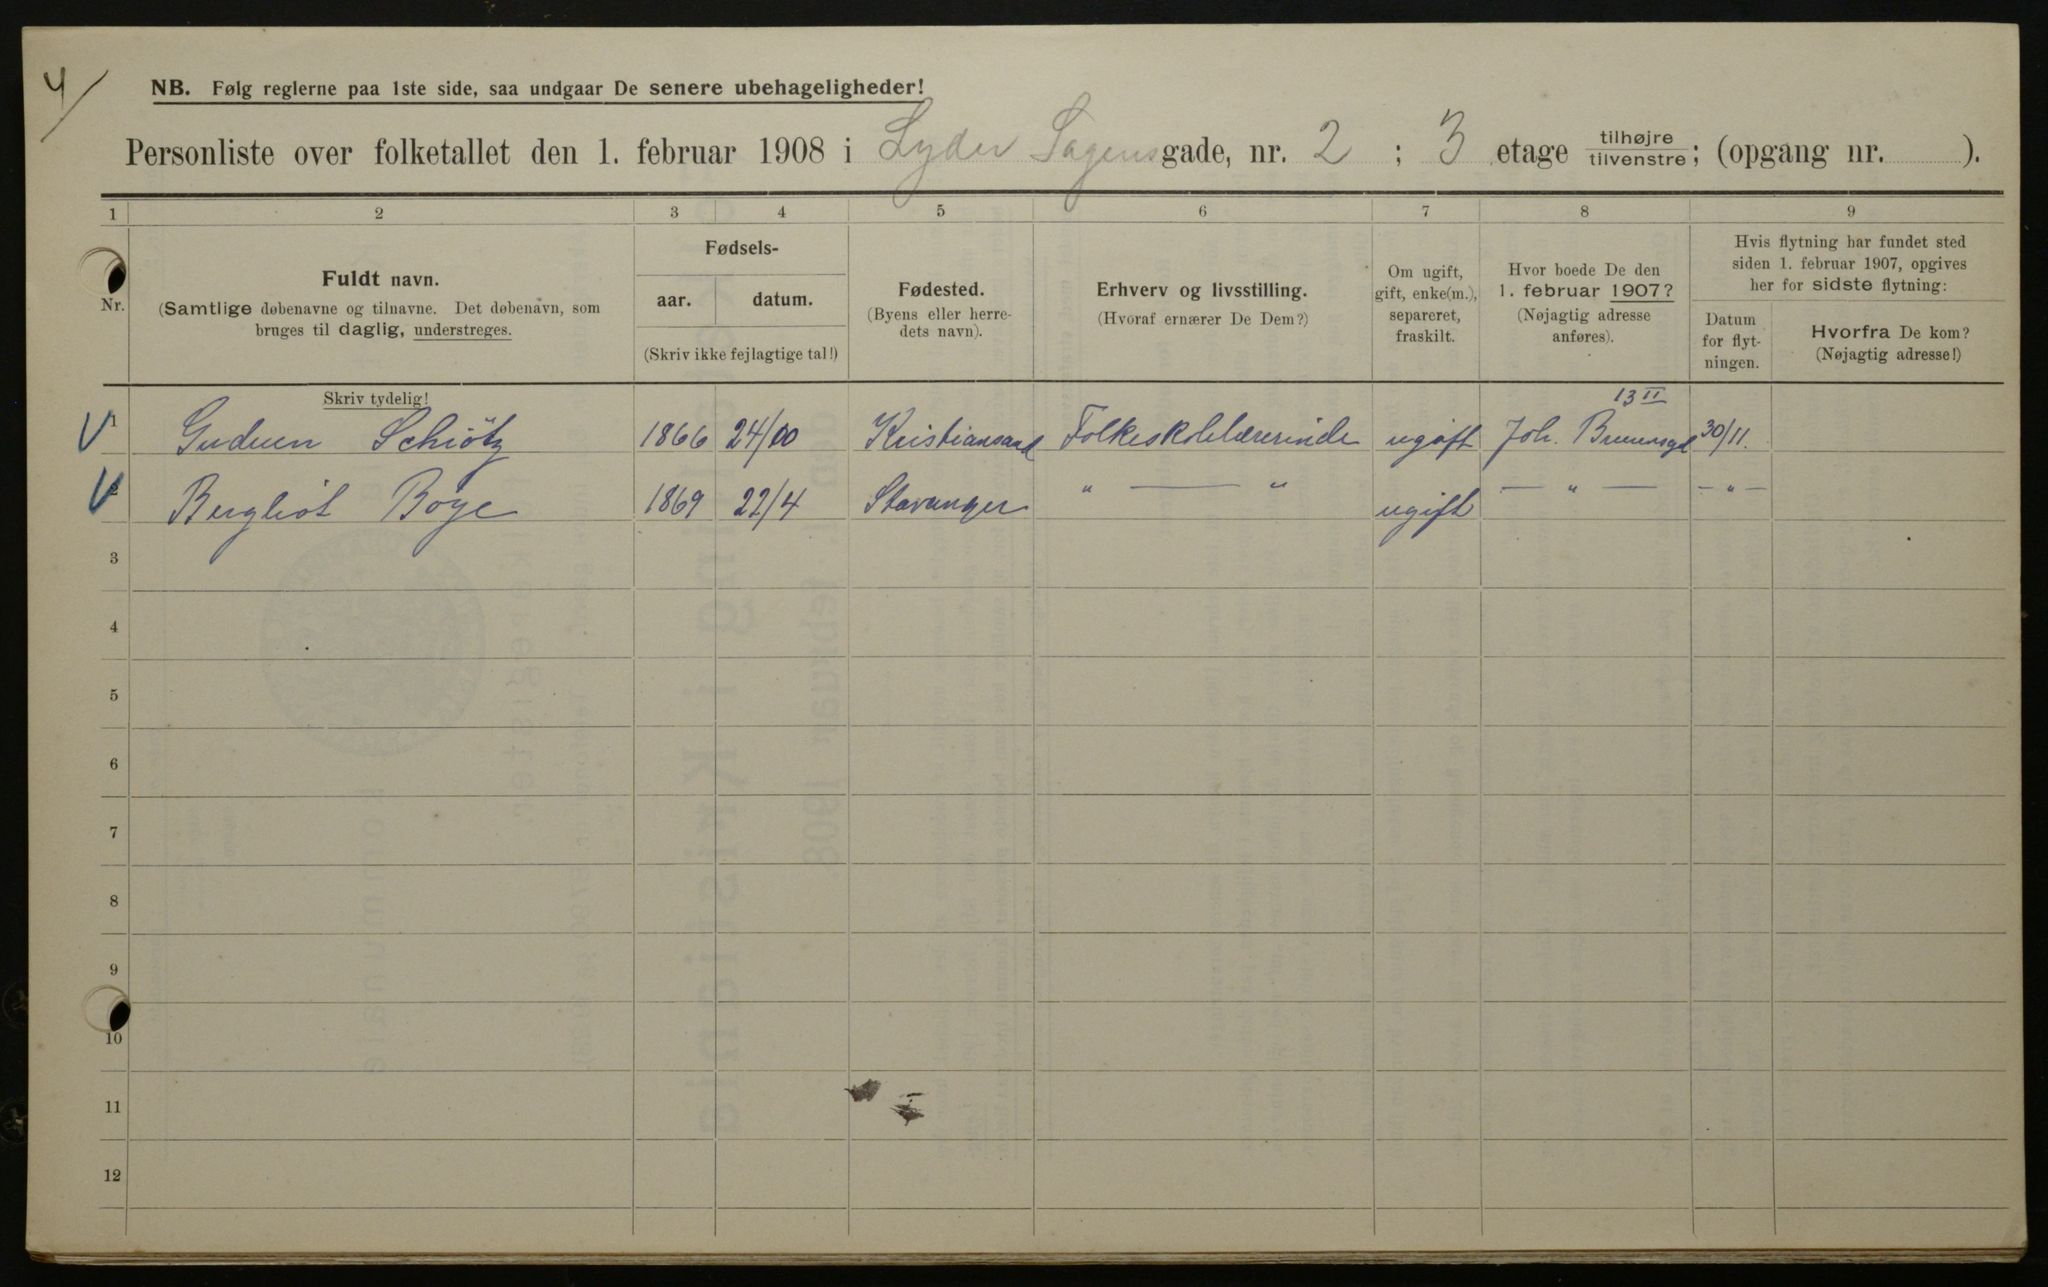 4/
NB. Følg reglerne paa 1ste side, saa undgaar De senere ubehageligheder!
Personliste over folketallet den 1. februar 1908 i Lyder Sagensgade, nr. 2 ; 3 etage tilhøjre tilvenstre; (opgang nr. ).
1 2 3 4 5 6 7 8 9
Nr.
Fuldt navn.
(Samtlige døbenavne og tilnavne. Det døbenavn, som
bruges til daglig, understreges.
Skriv tydelig!
Fødsels-
aar. datum.
(Skriv ikke fejlagtige tal!)
Fødested.
(Byens eller herre-
dets navn).
Erhverv og livsstilling.
(Hvoraf ernærer De Dem?)
Om ugift,
gift, enke(m.),
separeret,
fraskilt.
Hvor boede De den
1. februar 1907?
(Nøjagtig adresse
anføres).
Hvis flytning har fundet sted
siden 1. februar 1907, opgives
her for sidste flytning:
Datum
for flyt-
ningen.
Hvorfra De kom?
(Nøjagtig adresse!)
13 II
1 Gudrun Schiötz 1866 24/00 Kristiansand Folkeskolelærerinde ugift Joh. Bruunsgd 30/11.
2 Bergliot Boye 1869 22/4 Stavanger " — " ugift — " — — " —
3
4
5
6
7
8
9
10
11
12